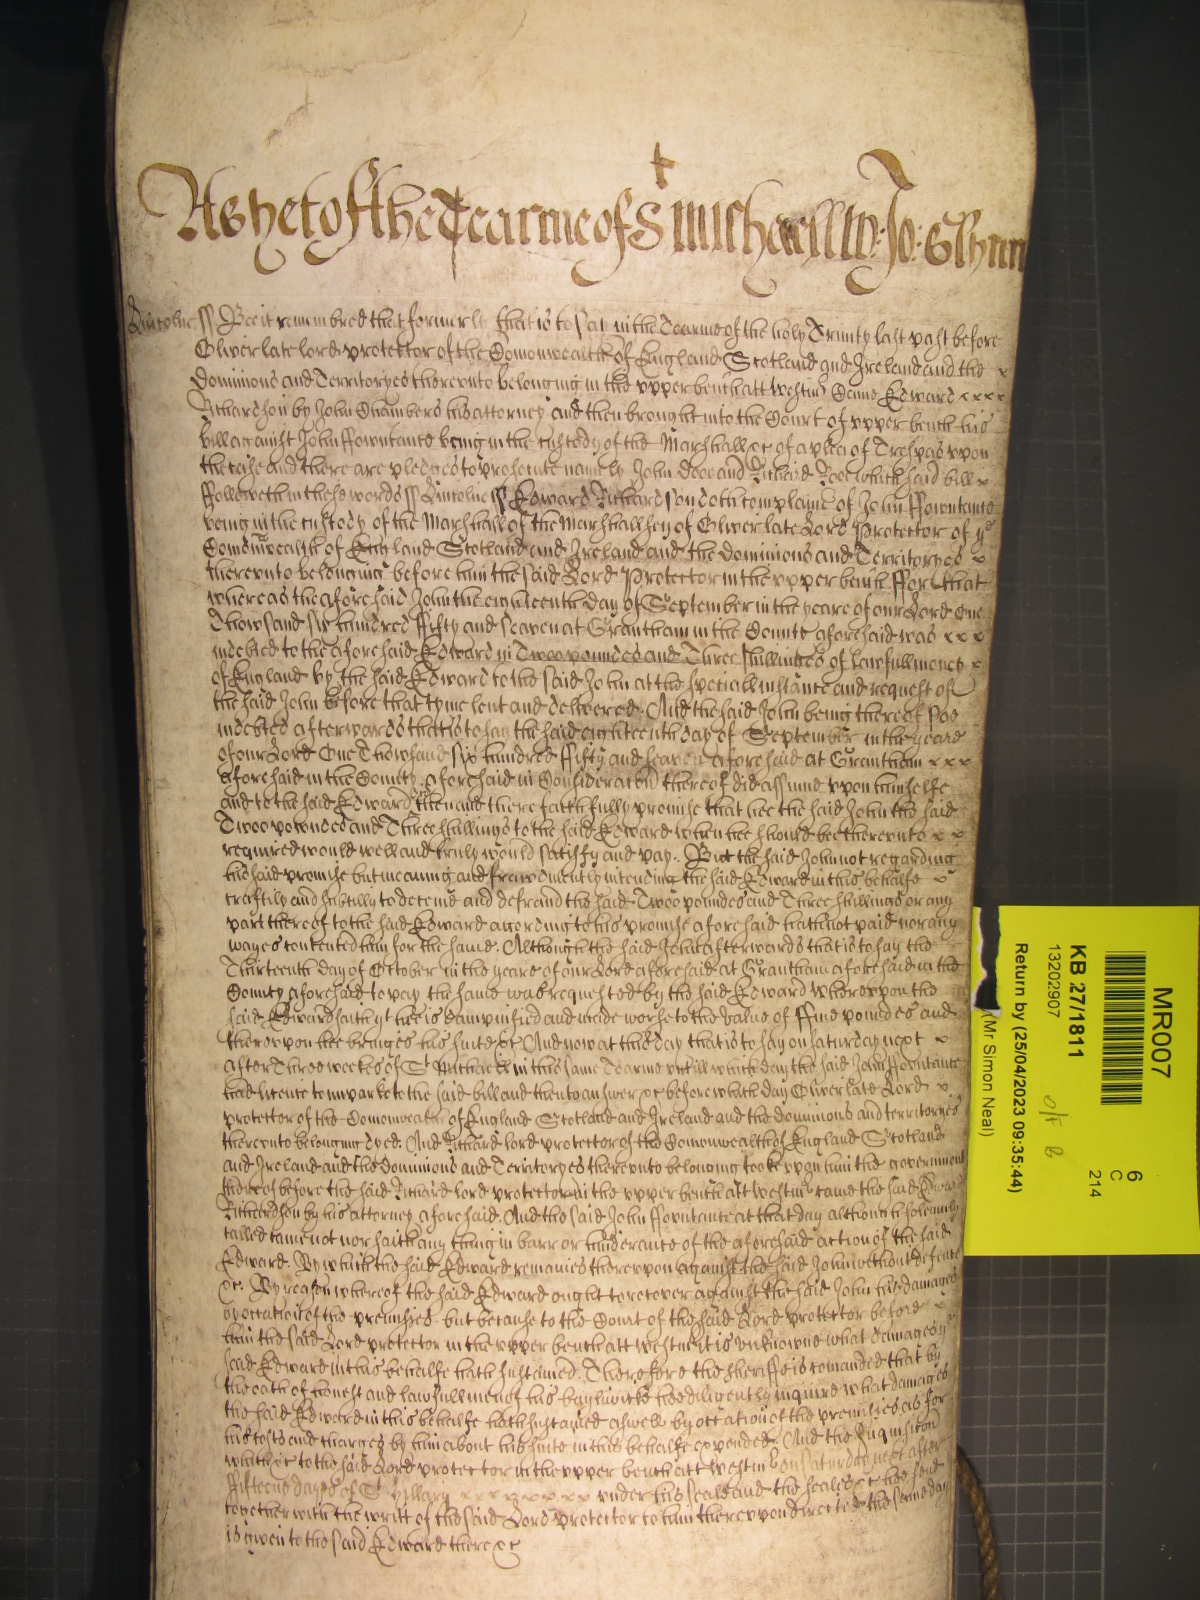 As yet of the Tearme of S Michaell W: Jo: Glynn
Lincolne ss Bee it remembred that formerly that is to say in the Tearme of the holy Trinity last past before
Oliver late lord protector of the Comonwealth of England Scotland and Ireland and the x
dominions and Territoryes thereunto belonging in the upper bench att Westmr Came Edward x x x x
Richardson by John Chambers his attorney and then brought into the Court of upper bench his
bill against John ffowntance being in the custody of the Marshall &c of a plea of Trespas upon
the case and there are pledges to prosecute namely John Doe and Richard Roe which said bill x
ffolloweth in these words ss Lincolne ss Edward Richardson doth complaine of John ffowntance
being in the custody of the Marshall of the Marshallsey of Oliver late Lord Protector of ye
Comonwealth of England Scotland and Ireland and the dominions and Territoryes x
thereunto belonging before him the said Lord Protector in the upper bench ffor that
whereas the aforesaid John the eighteenth day of September in the yeare of our Lord One
Thowsand six hundred ffifty and seaven at Grantham in the County aforesaid was x x x
indebted to the aforesaid Edward in Twoo poundes and Three shillinges of lawfull money x
of England by the said Edward to the said John at the speciall instance and request of
the said John before that tyme lent and delivered. And the said John being thereof soe
indebted afterwards that is to say the said eighteenth day of September in the yeare
of our Lord One Thowsand six hundred ffifty and seaven aforesaid at Grantham x x x
aforesaid in the County aforesaid in Consideracon thereof did assume upon himselfe
and to the said Edward then and there faithfully promise that hee the said John the said
Twoo powndes and Three shillings to the said Edward when hee should bee thereunto x x
required would well and truly would satisfy and pay. But the said John not regarding
his said promise but meaning and frawdulently intending the said Edward in this behalfe x
craftily and subtilly to deceive and defraud the said Twoo poundes and Three shillings or any
part thereof to the said Edward according to his promise aforesaid hath not paid nor any
wayes contented him for the same. Although the said John afterwards that is to say the
Thirteenth day of October in the yeare of our Lord aforesaid at Grantham aforesaid in the
County aforesaid to pay the same was requested by the said Edward Whereupon the
said Edward saith yt hee is dampnified and made worse to the value of ffive poundes and
thereupon hee bringes his suite &c And now at this day that is to say on Saturday next x
after Three weekes of St Michaell in this same Tearme untill which day the said John ffowntance
had licence to imparle to the said bill and then to answer &c before which day Oliver late Lord x
protector of the Comonwealth of England Scotland and Ireland and the dominions and territoryes
thereunto belonging dyed. And Richard lord protector of the Comonwealth of England Scotland
and Ireland and the dominions and Territoryes thereunto belonging tooke uppon him the government
thereof before the said Richard lord protector in the upper bench att Westmr came the said Edward
Richardson by his attorney aforesaid. And the said John ffowntance at that day although solemnly
called came not nor saith any thing in barr or hinderance of the aforesaid action of the said
Edward. By which the said Edward remaines thereupon against the said John without defence
&c. By reason whereof the said Edward ought to recover against the said John his damages
by occation of the premisses. but because to the Court of the said Lord protector before x
him the said Lord protector in the upper bench att Westmr it is unknowne what damages ye
said Edward in this behalfe hath sustained. Therefore the sheriffe is comanded that by
the oath of honest and lawfull men of his baylywicke hee diligently inquire what damages
the said Edward in this behalfe hath sustained aswell by occation of the premisses as for
his costs and charges by him about his suite in this behalfe expended. And the Inquisicon
which &c to the said Lord protector in the upper bench att Westmr on Saturday next after
ffifteene dayes of St Hillary x x x x x x x x under his seale and the seales &c hee send
together with the writt of the said Lord protector to him thereupon directed the same day
is given to the said Edward there &c
MR007
6
C
214
KB 27/1811
13202907
Return by (25/04/2023 09:35:44)
(Mr Simon Neal)